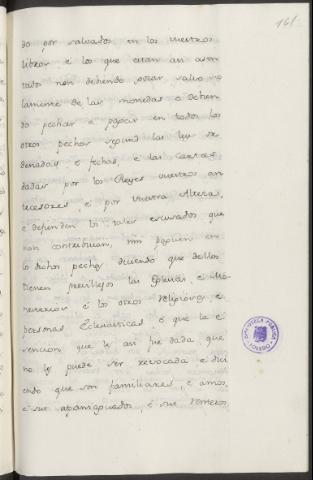 161
do por salvados en los vuestros
libros e los que estan an asen
tado non debiendo estar salvo so
lamente de las monedas e debien
do pechar e pagar en todos los
otros pechos segund las leyes or
denadas, e fechas, e las cartas
dadas por los Reyes vuestros an
tecesores, e por Vuestra Alteza,
e defienden los tales escusados que
non contribuian, nin paguen en
los dichos pechos diciendo que dellos
tienen previllejos las Iglesias, e Mo
nesterios e los otros religiosos, e
personas Eclesiasticas, e que la e
sencion que le asi fue dada, que
no les puede ser revocada e dici
endo que son familiares, e amos,
e sus apaniaguados, e sus renteros
BIBLIOTECA PUBLICA
TOLEDO